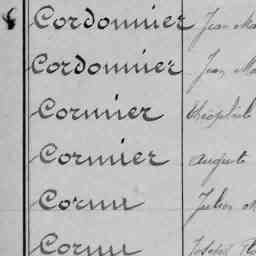 Cordonnier Jean Ma
Cordonnier Jean Ma
Cormier Théophile
Cormier Auguste
Cornu Julien
Cornu Joseph